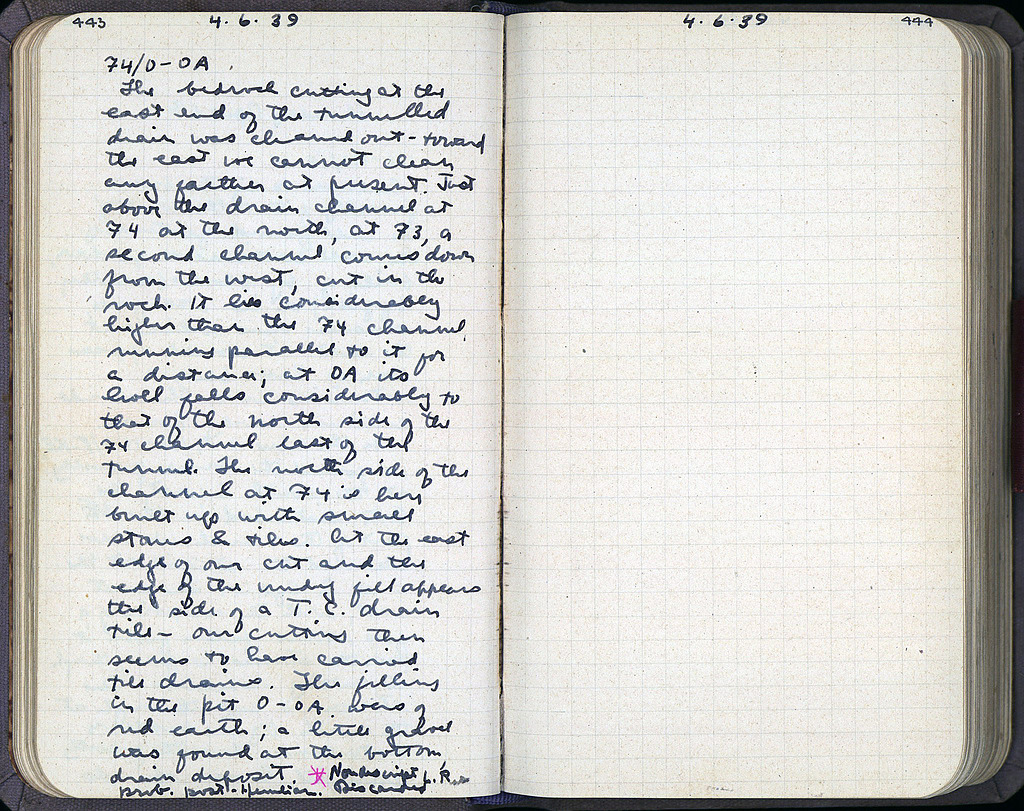 443
4.6.39
4.6.39
444
74/O-OA.
The bedrock cutting at the
east end of the tunnelled
drain was cleaned out - toward
the east we cannot clean
any farther at present. Just
above the drain channel at
74 at the north, at 73, a
second channel comes down
from the west, cut in the
rock. It lies considerably
higher than the 74 channel,
running parallel to it for
a distance; at OA its
level falls considerably to
that of the north side of the
74 channel east of the
tunnel. The north side of the
channel at 74 is here
built up with small
stones & tiles. At the east
edge of our cut and the
edge of the muddy fill appears
the side of a T.C. drain
tile - our cutting then
seems to have carried
tile drains. The filling
in the pit O-OA was of
red earth; a little gravel
was found at the bottom
drain deposit. * Nondescript L.
prob. post-Herulian. Discarded